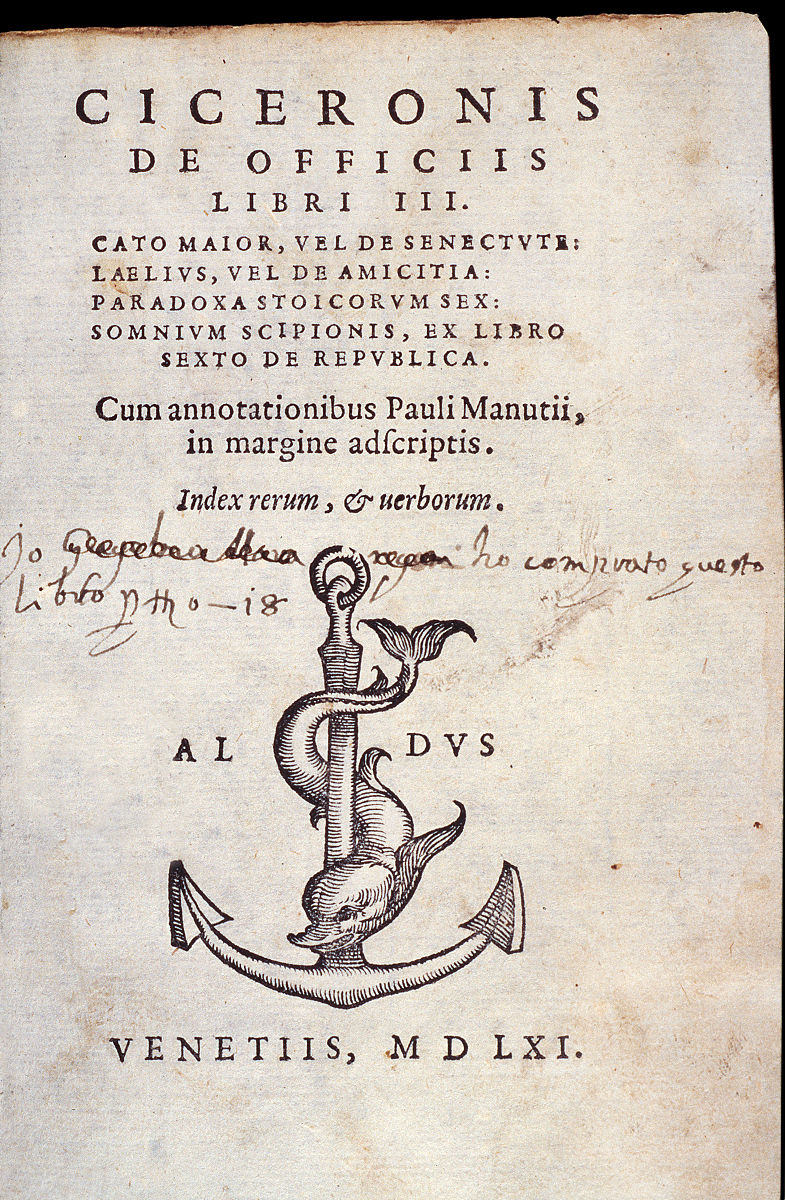 CICERONIS
DE OFFICIIS
LIBRI III.
CATO MAIOR, VEL DE SENECTVTE:
LAELIVS, VEL DE AMICITIA:
PARADOXA STOICORVM SEX:
SOMNIVM SCIPIONIS, EX LIBRO
SEXTO DE REPVBLICA.
Cum annotationibus Pauli Manutii,
in margine adſcriptis.
Index rerum, & uerborum.
Jo ho comprato questo
libro
ALDVS
VENETIIS, M D LXI.